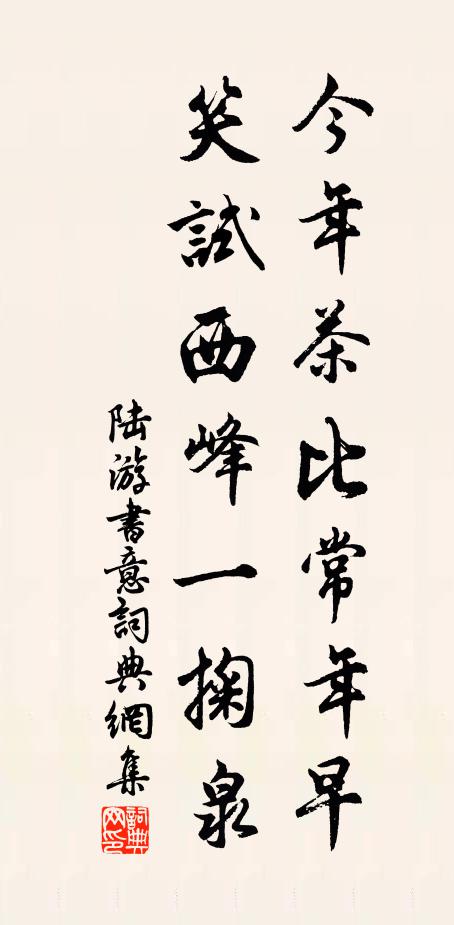 今年茶比常年早
笑試西峰一掬泉
陸游書意詞典網集
詞典
网